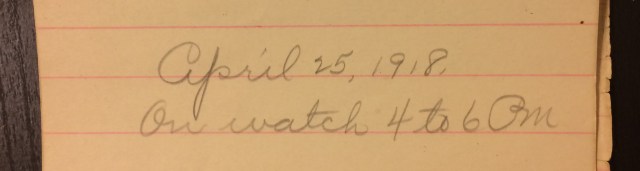 April 25, 1918.
On watch 4 to 6 PM